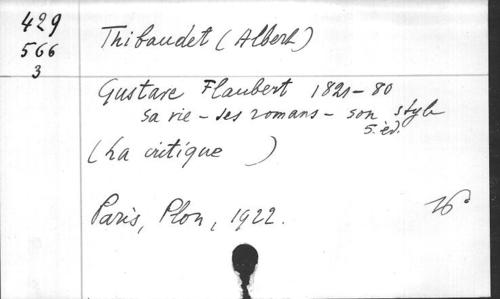 429
566
3
Thibaudet (Albert)
Gustave Flaubert 1821-80
sa vie - ses romans - son style
5. éd.
(La critique )
Paris, Plon, 1922.